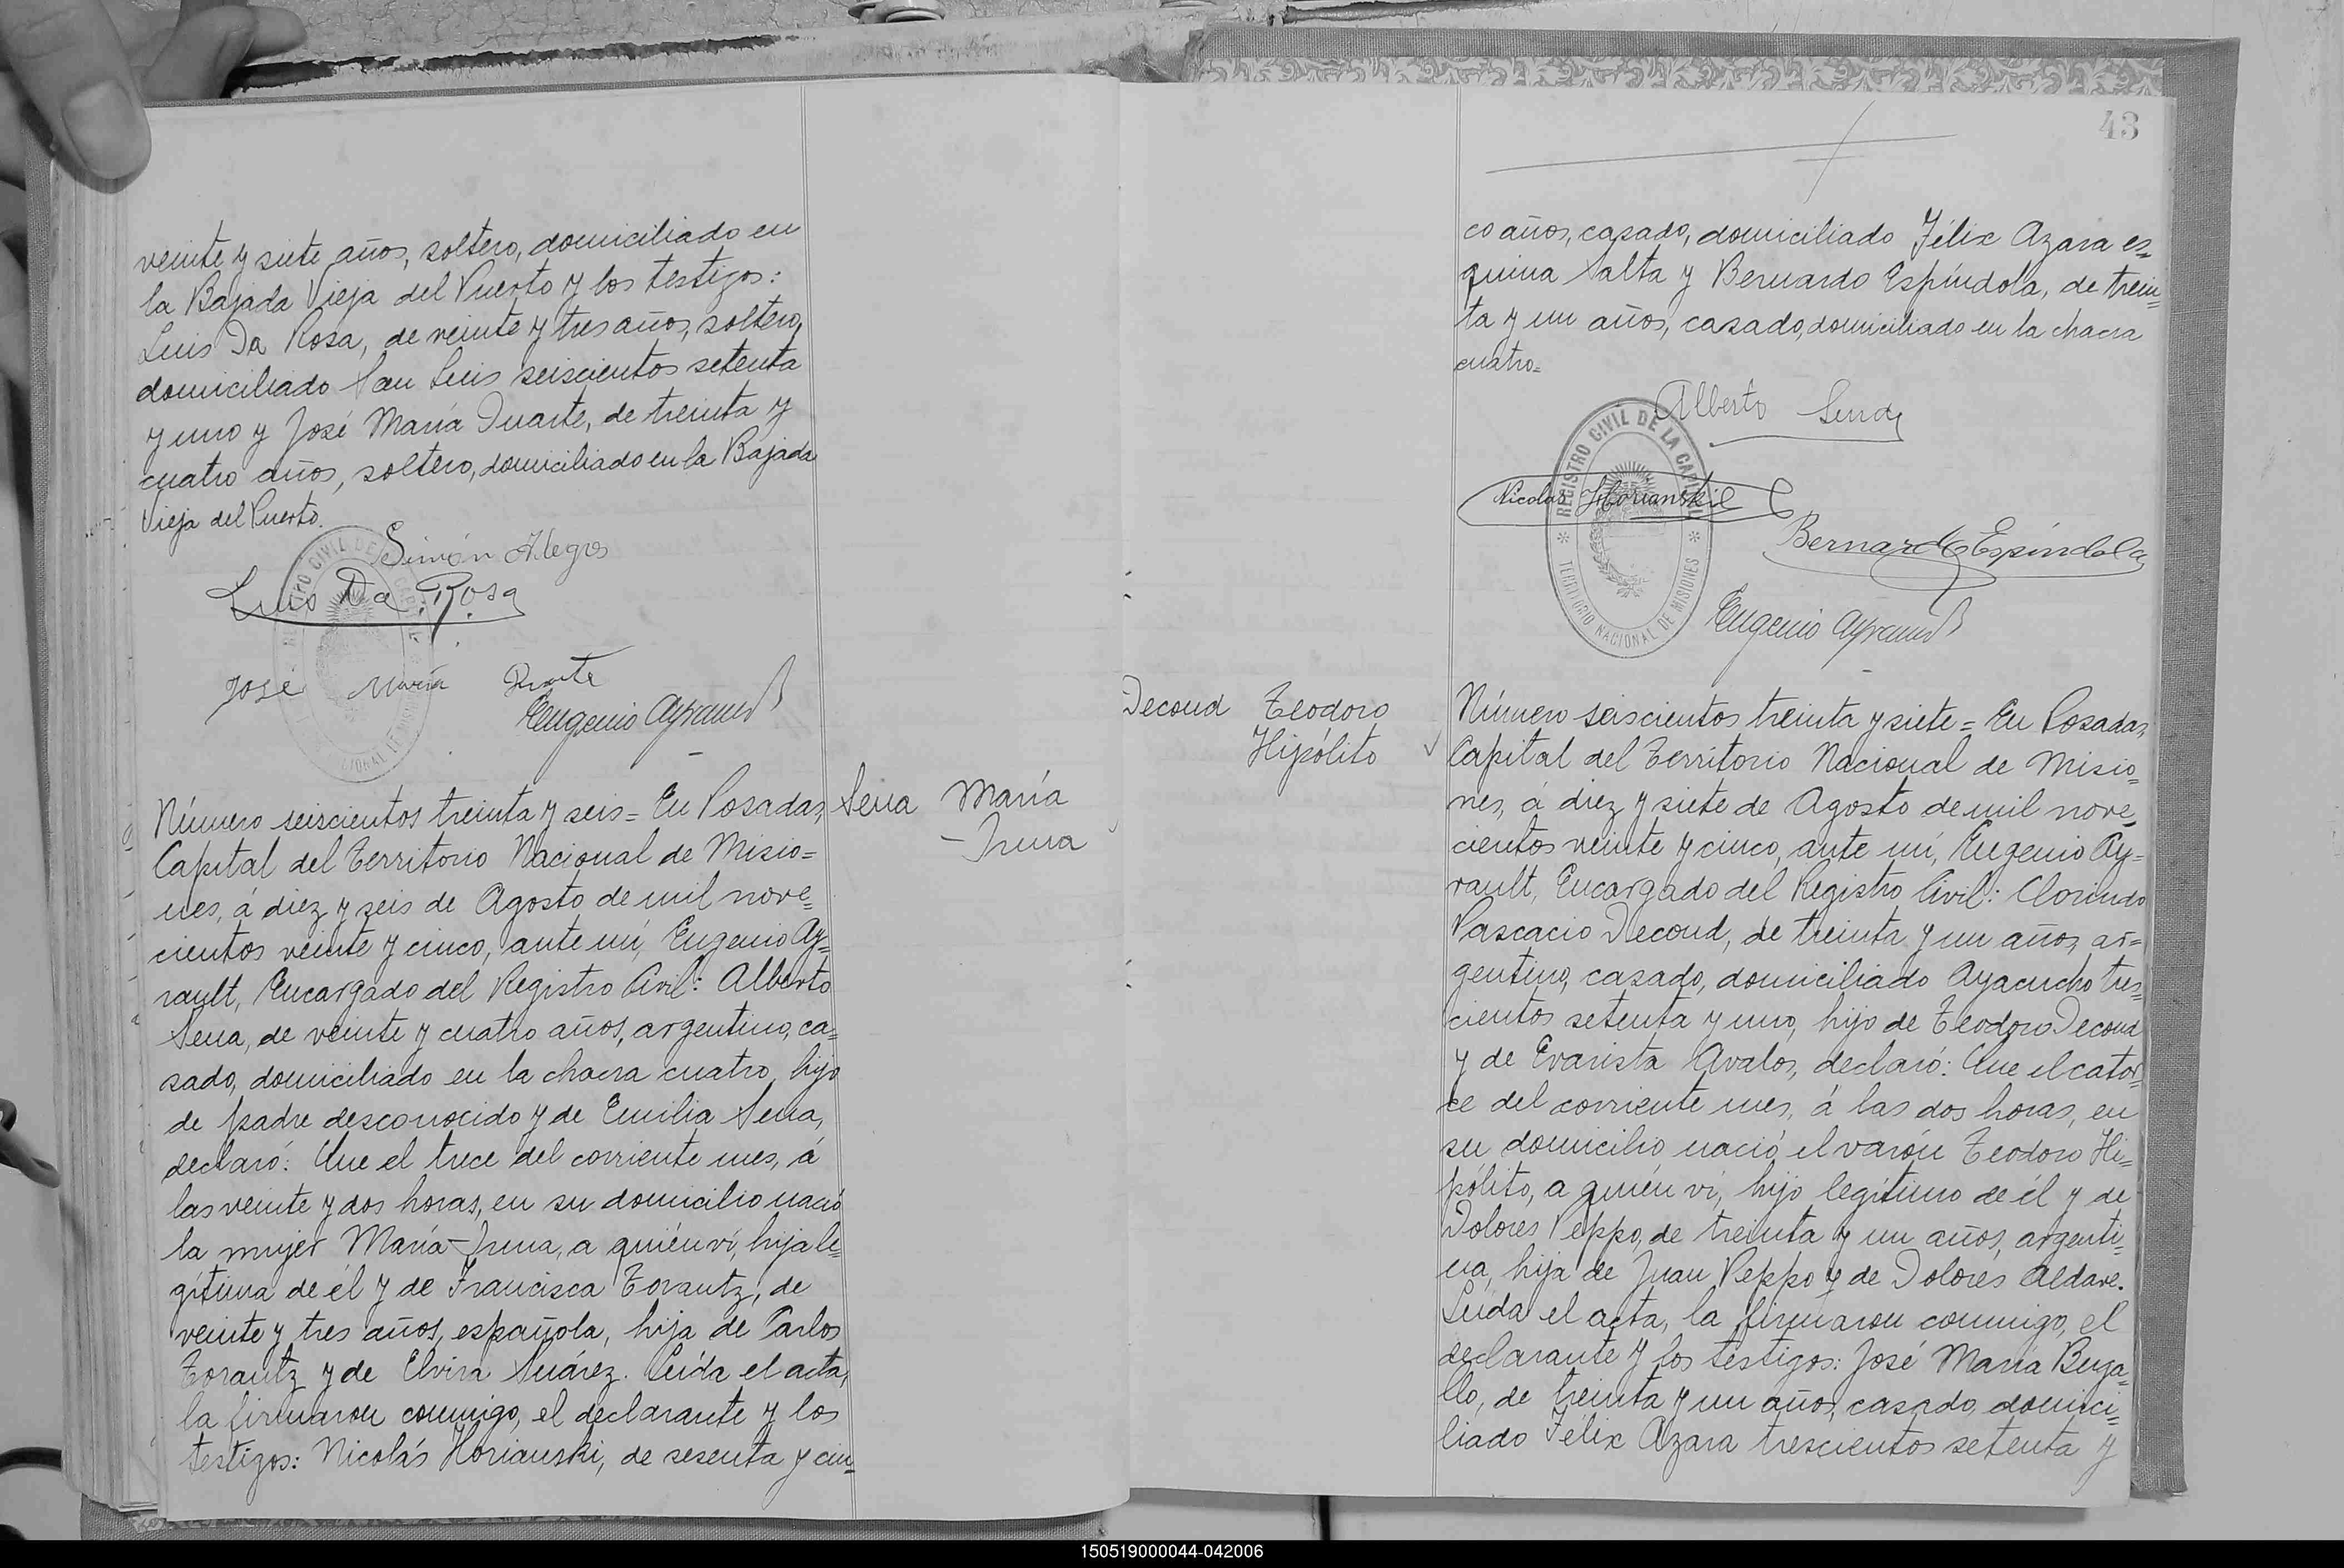 veinte y siete años, soltero, domiciliado en
la Bajada Vieja del Puerto y los testigos:
Luis Da Rosa, de veinte y tres años, soltero,
domiciliado San Luis seiscientos setenta
y uno y José María Duarte, de treinta y
cuatro años, soltero, domiciliado en la Bajada
Vieja del Puerto.
Simón Alegre
Luis Da Rosa
José María Duarte
Eugenio Ayrault
Número seiscientos treinta y seis = En Posadas,
Capital del Territorio Nacional de Misio=
nes, á diez y seis de Agosto de mil nove=
cientos veinte y cinco, ante mí, Eugenio Ay=
rault, Encargado del Registro Civil: Alberto
Sena, de veinte y cuatro años, argentino, ca=
sado, domiciliado en la chacra cuatro, hijo
de padre desconocido y de Emilia Sena,
declaró: Que el trece del corriente mes, á
las veinte y dos horas, en su domicilio nació
la mujer María-Irma, a quién vi, hija le=
gítima de él y de Francisca Torantz, de
veinte y tres años, española, hija de Carlos
Torantz y de Elvira Suárez. Leída el acta,
la firmaron conmigo, el declarante y los
testigos: Nicolás Horianski, de sesenta y cin=
Sena María
-Irma
43
co años, casado, domiciliado Félix Azara es=
quina Salta y Bernardo Espíndola, de trein=
ta y un años, casado, domiciliado en la chacra
cuatro=
Alberto Sena
REGISTRO CIVIL DE LA CAPITAL
TERRITORIO NACIONAL DE MISIONES
Nicolas Horianski
Bernardo Espindola
Eugenio Ayrault
Decoud Teodoro
Hipólito
Número seiscientos treinta y siete = En Posadas,
Capital del Territorio Nacional de Misio=
nes, á diez y siete de Agosto de mil nove=
cientos veinte y cinco, ante mí, Eugenio Ay=
rault, Encargado del Registro Civil: Clorindo
Pascacio Decoud, de treinta y un años, ar=
gentino, casado, domiciliado Ayacucho tres=
cientos setenta y uno, hijo de Teodoro Decoud
y de Evarista Avalos, declaró: Que el cator=
ce del corriente mes, á las dos horas, en
su domicilio nació el varón Teodoro Hi=
pólito, a quién vi, hijo legítimo de él y de
Dolores Peppo, de treinta y un años, argenti=
na, hija de Juan Peppo y de Dolores Aldave.
Leída el acta, la firmaron conmigo, el
declarante y los testigos: José María Buga=
llo, de treinta y un años, casado, domici=
liado Félix Azara trescientos setenta y
150519000044-042006